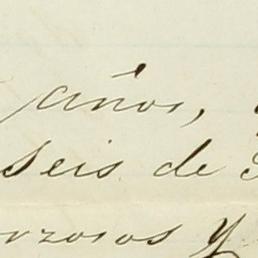 años,
seis de
rzosos y